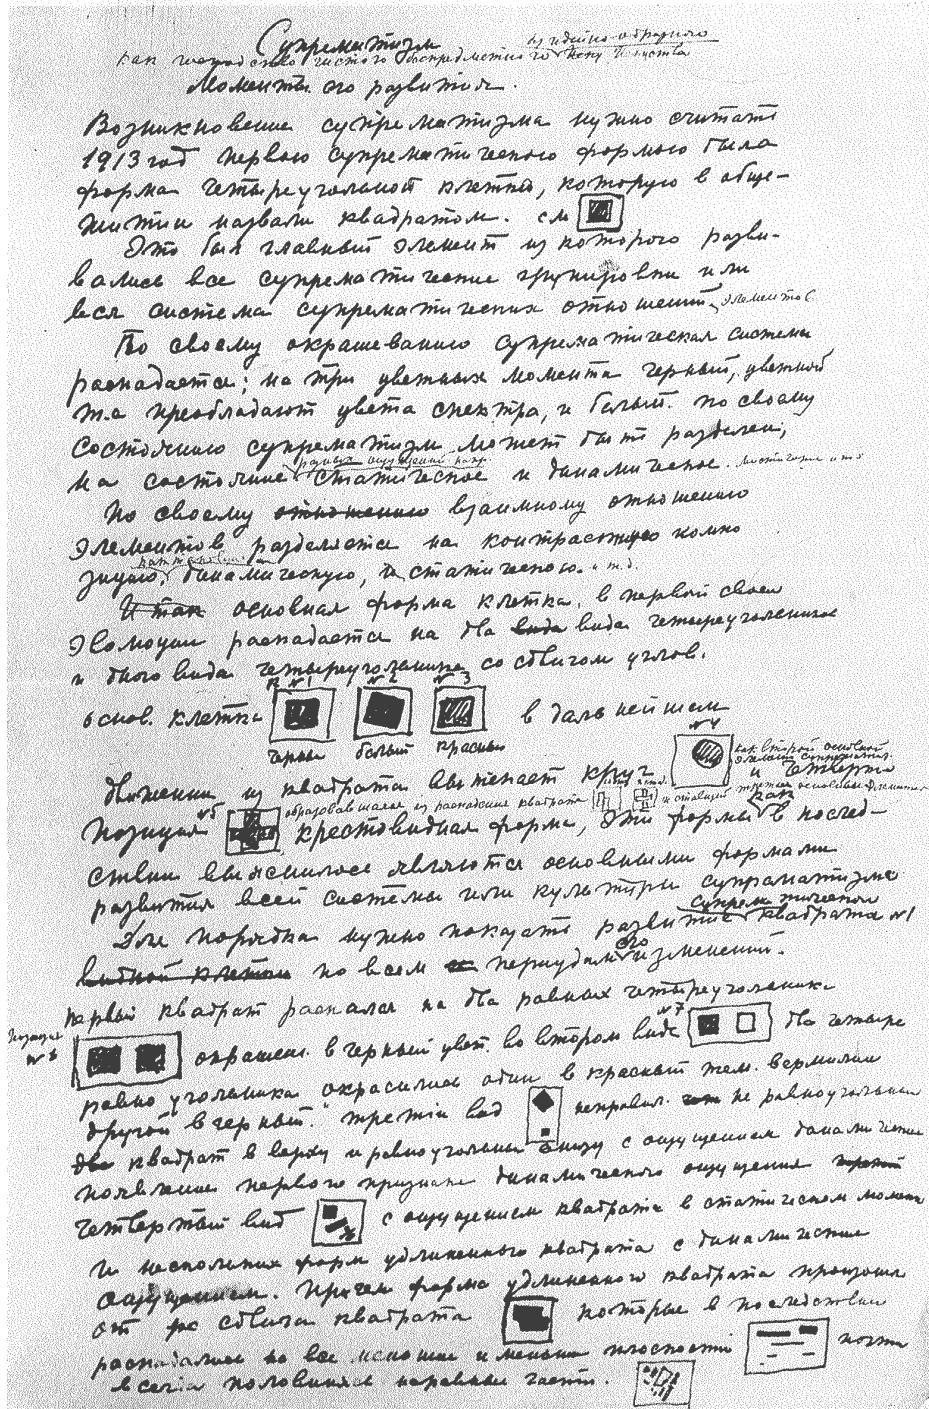 Супрематизм
как чистого беспредметного
Моменты его развития.
Возникновение супрематизма нужно считать
1913 год первою супрематическою формою была
форма четыреугольной клетки, которую в обще-
житии назвали квадратом. см
Это был главный элемент из которого разви-
вались все супрематические групировки или
вся система супрематических отношений элементов
По своему окрашеванию супрематическая система
распадается; на три цветных момента черный, цветной
т.а преобладают цвета спектра, и белый. по своему
состоянию супрематизм может быть разделен,
разных ощущений
на состояние статическое и динамическое.
По своему отношению взаимному отношению
элементов разделяется на контрастную компо
зицию, динамическую, и статическою. и т.д.
Итак основная форма клетка, в первой своей
эволюции распадается на два вида вида четыреугольников
и одного вида четыреугольника со сдвигом углов.
№1 №2 №3
основ. клетка в дальнейшем
черный белый красный
№4
как второй основной
элемент супрематизм.
движении из квадрата вытекает круг и четвертой
образовавшаяся из распадения квадрата
позиция №5 крестовидная форма, эти формы как в послед-
ствии выяснилось являются основными формами
развития всей системы или культуры супрематизма
супрематического
Для порядка нужно показать развитие квадрата №1
видной клетки по всем периудам его изменений.
первый квадрат распался на два равных четыреугольника
позиция №6 окрашен. в черный цвет. во втором виде №7 два четыре
равно угольника окрасились один в красный тем. вермилии
другой в черный. третий вид неправил. не равноугольный
два квадрат в верху и равноугольный внизу с ощущением динамичести
появление первого признака динамического ощущения
четвертый вид с ощущением квадрата в статическом момент
и нескольких форм удлиненного квадрата с динамическим
ощущением. Причем форма удлиненного квадрата произошла
от сдвига квадрата которые в последствии
распадались на все меньшие и меньшие плоскости
всегда половинясь неравные части.